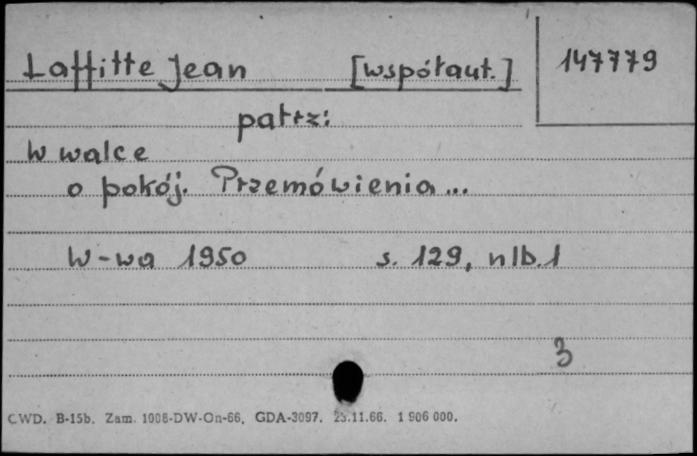 Laffitte Jean [współaut.] 147779
patrz:
W walce
o pokój. Przemówienia...
W-wa 1950 s. 129, nlb. 1
3
CWD. B-15b. Zam. 1008-DW-On-66, GDA-3097. 23.11.66. 1 906 000.